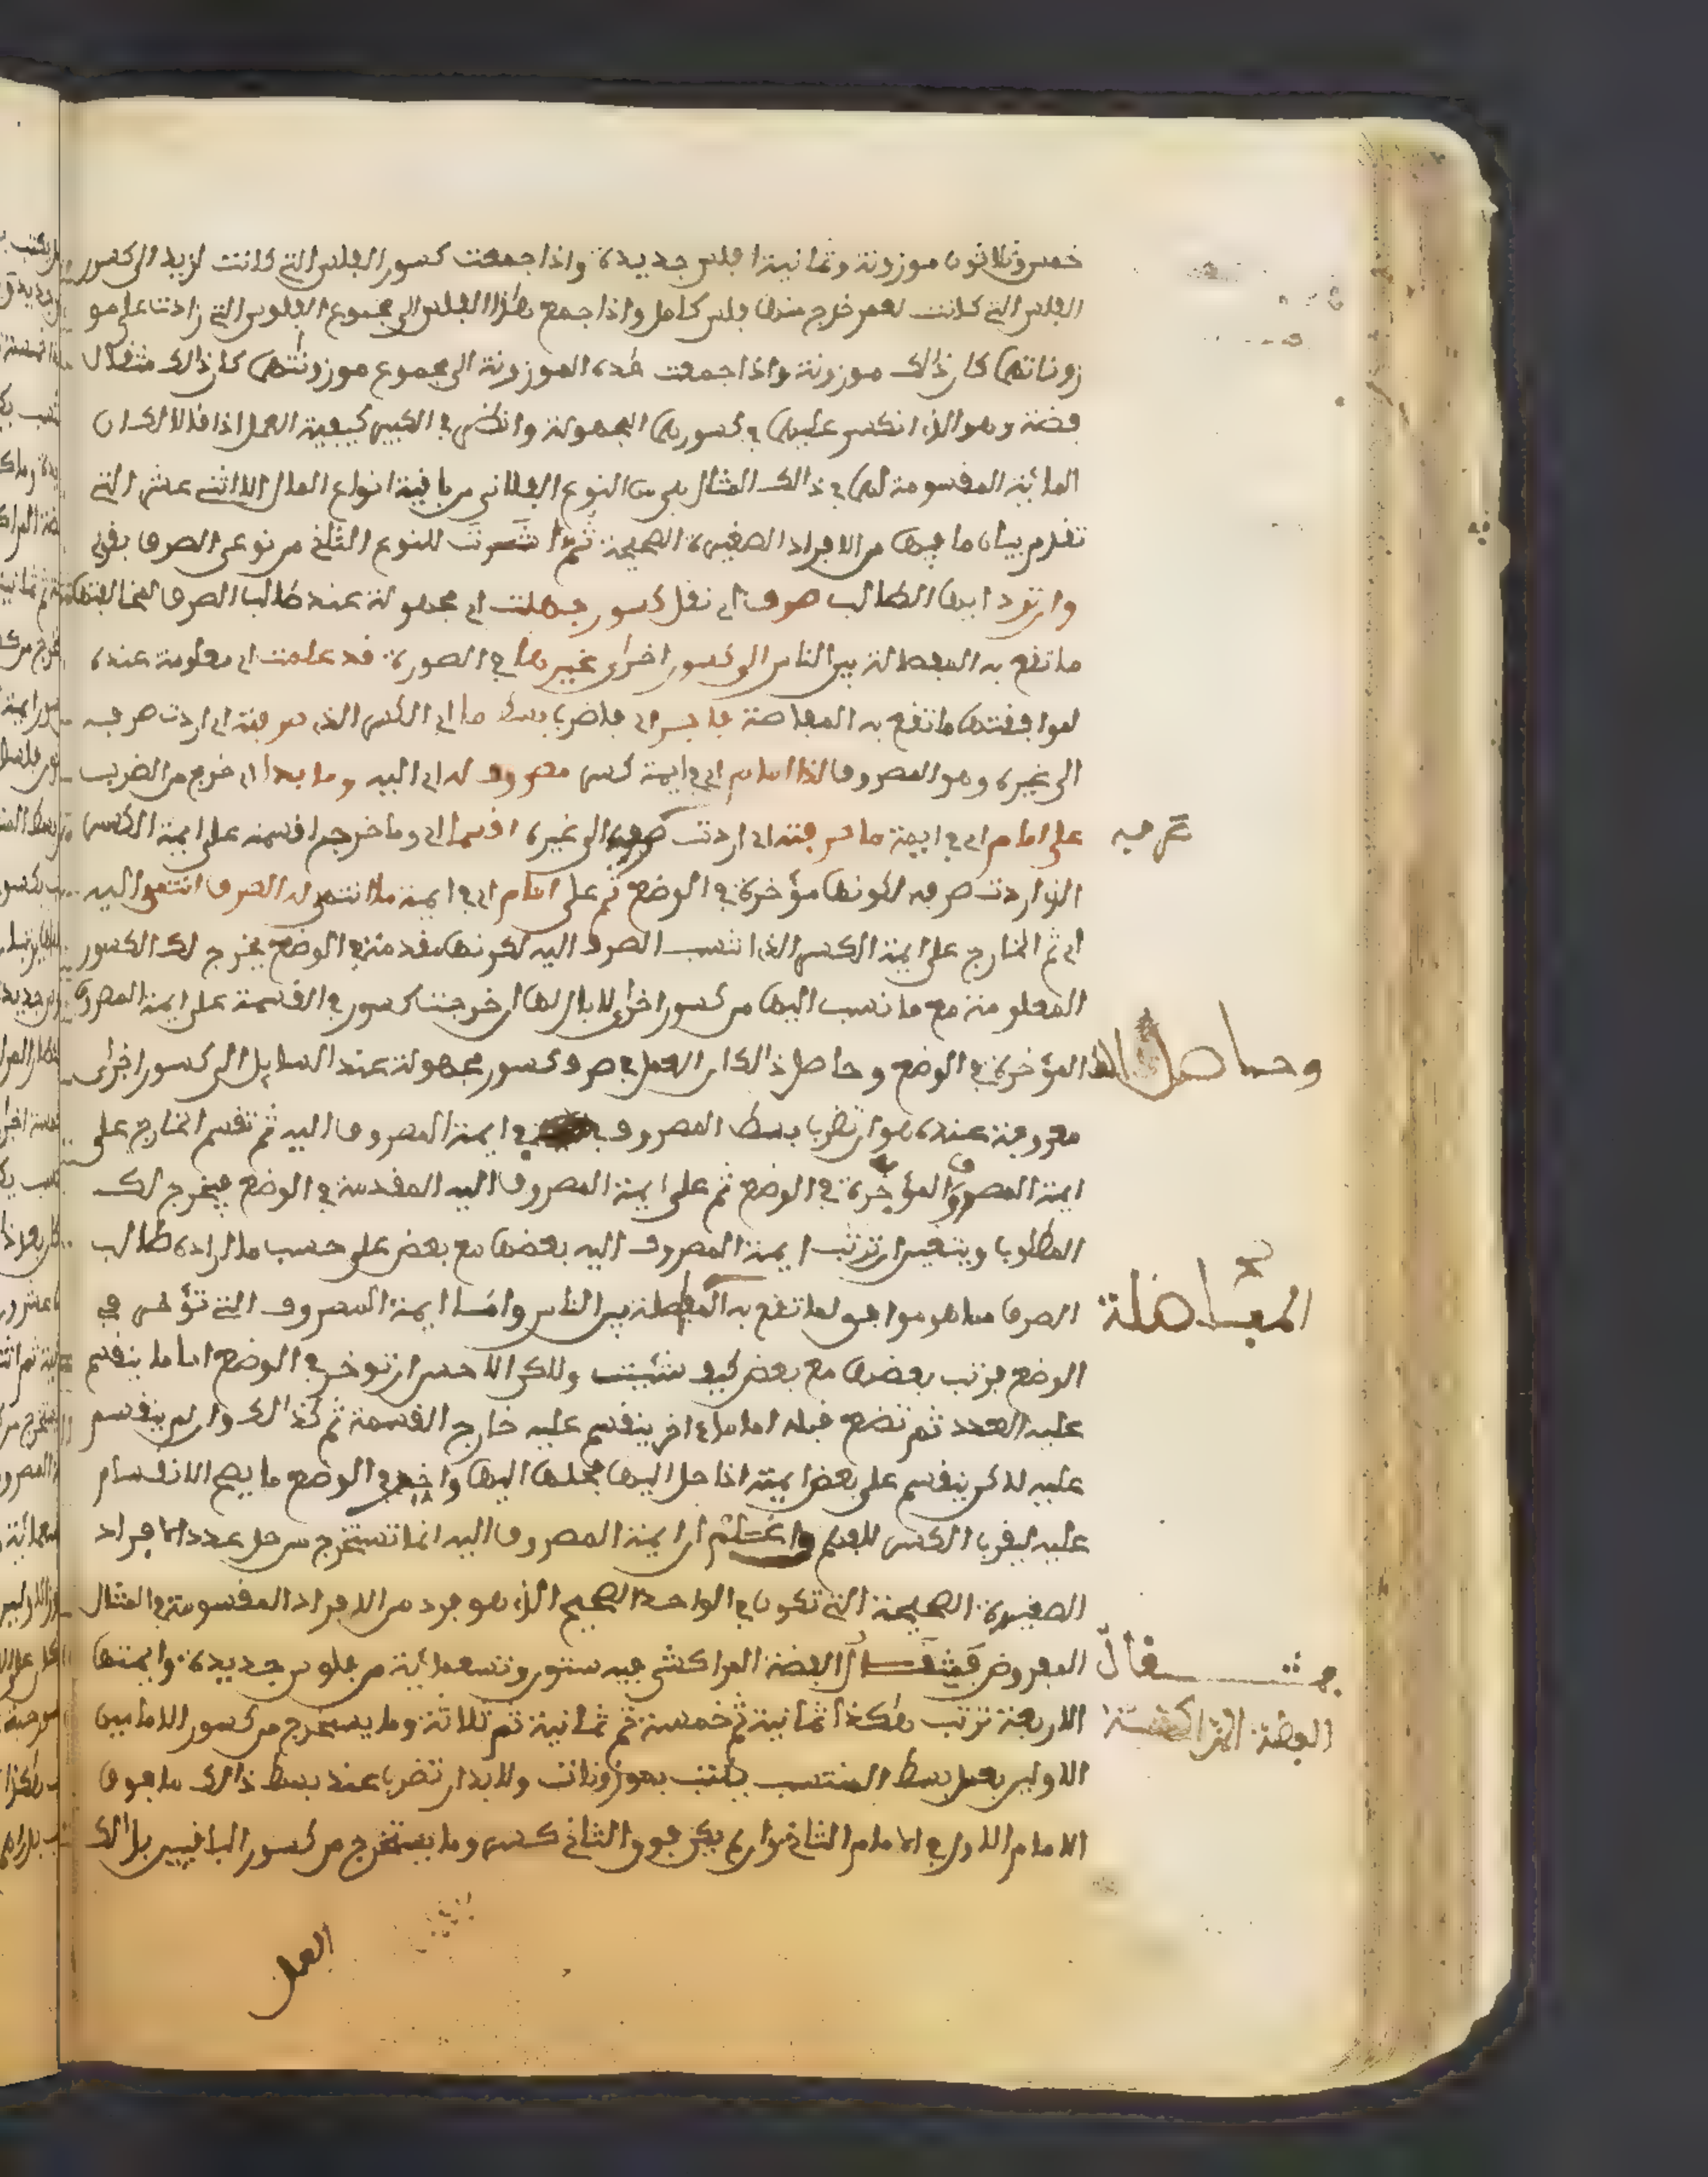 خمس وثلاثون موزونة وثمانية افلس جديدة واذا جمعت كسور الفلس التي كانت لزيد الى كسور
الفلس التي كانت لعمر خرج منها فلس كامل واذا جمع هذا الفلس الى مجموع الفلوس التي زادت على مو
زوناتهما كان ذالك موزونة واذا جمعت هذه الموزونة الى مجموع موزونتهما كان ذالك مثقال
فضة وهو الذي انكسر عليهما في كسورهما المجهولة وانظر في الكبير كيفية العمل اذا قال لك ان
المائة المقسومة لهما في ذالك المثال هي من النوع الفلاني من باقية انواع المال الاثني عشر التي
تقدم بيان ما فيها من الافراد الصغيرة الصحيحة ثم اشرت للنوع الثاني من نوعي الصرف بقولي
وان ترد ايها الطالب صرف اي نقل كسور جهلت اي مجهولة عند طالب الصرف لمخالفتها
ما تقع به المفاصلة بين الناس الى كسور اخرى غيرها في الصورة قد علمت اي معلومة عنده
لموافقتها ما تقع به المفاصلة فاضرب بسط ما اي الكسر الذي صرفته اي اردت صرفه
الى غيره وهو المصروف لذا امام اي في ايمة كسر مصروف له اي اليه وما بدا اي خرج من الضرب
على امام اي في ايمة ما صرفته اي اردت صرفه الى غيره اقسما اي وما خرج اقسمه على ايمة الكسر
الذي اردت صرفه لكونها مؤخرة في الوضع ثم على امام اي في ايمة ما انتمى له الصرف انتمى اليه
اي ثم الخارج على ايمة الكسر الذي انتسب الصرف اليه لكونها مقدمة في الوضع يخرج لك الكسور
المعلومة مع ما نسب اليها من كسور اخرى لا بال لها ان خرجت كسور في القسمة على ايمة المصروف
المؤخرة في الوضع وحاصل ذالك ان العمل في صرف كسور مجهولة عند السايل الى كسور اخرى
معروفة عنده هو ان تضرب بسط المصروف في ايمة المصروف اليه ثم تقسم الخارج على
ايمة المصروف المؤخرة في الوضع ثم على ايمة المصروف اليه المقدمة في الوضع فيخرج لك
المطلوب ويتعين ان ترتب ايمة المصروف اليه بعضها مع بعض على حسب ما اراده طالب
الصرف مما هو موافق لما تقع به المفاصلة بين الناس واما ايمة المصروف التي تؤخر في
الوضع فرتب بعضها مع بعض كيف شئت ولكن الاحسن ان تؤخر في الوضع اماما ينقسم
عليه العدد ثم تضع قبله اماما اخر ينقسم عليه خارج القسمة ثم كذالك وان لم ينقسم
عليه لاكن ينقسم على بعض ايمته اذا حل اليها فحلها اليها واخر في الوضع ما يصح الانقسام
عليه ليقرب الكسر للفهم واعلم ان ايمة المصروف اليه انما تستخرج من حل عدد الافراد
الصغيرة الصحيحة التي تكون في الواحد الصحيح الذي هو فرد من الافراد المقسومة في المثال
المفروض فمثقال الفضة المراكشي فيه ستون وتسعمائة من فلوس جديدة وايمتها
الاربعة ترتب هكذا ثمانية ثم خمسة ثم ثمانية ثم ثلاثة وما يستخرج من كسور الامامين
الاولين بعمل بسط المنتسب يكتب بموزونات ولابد ان تضرب عند بسط ذالك ما فوق
الامام الاول في الامام الثاني وان لم يكن فوق الثاني كسر وما يستخرج من كسور الباقيين بذالك
العمل
صرفه
وحاصل
المفاصلة
مثقال
الفضة المراكشية